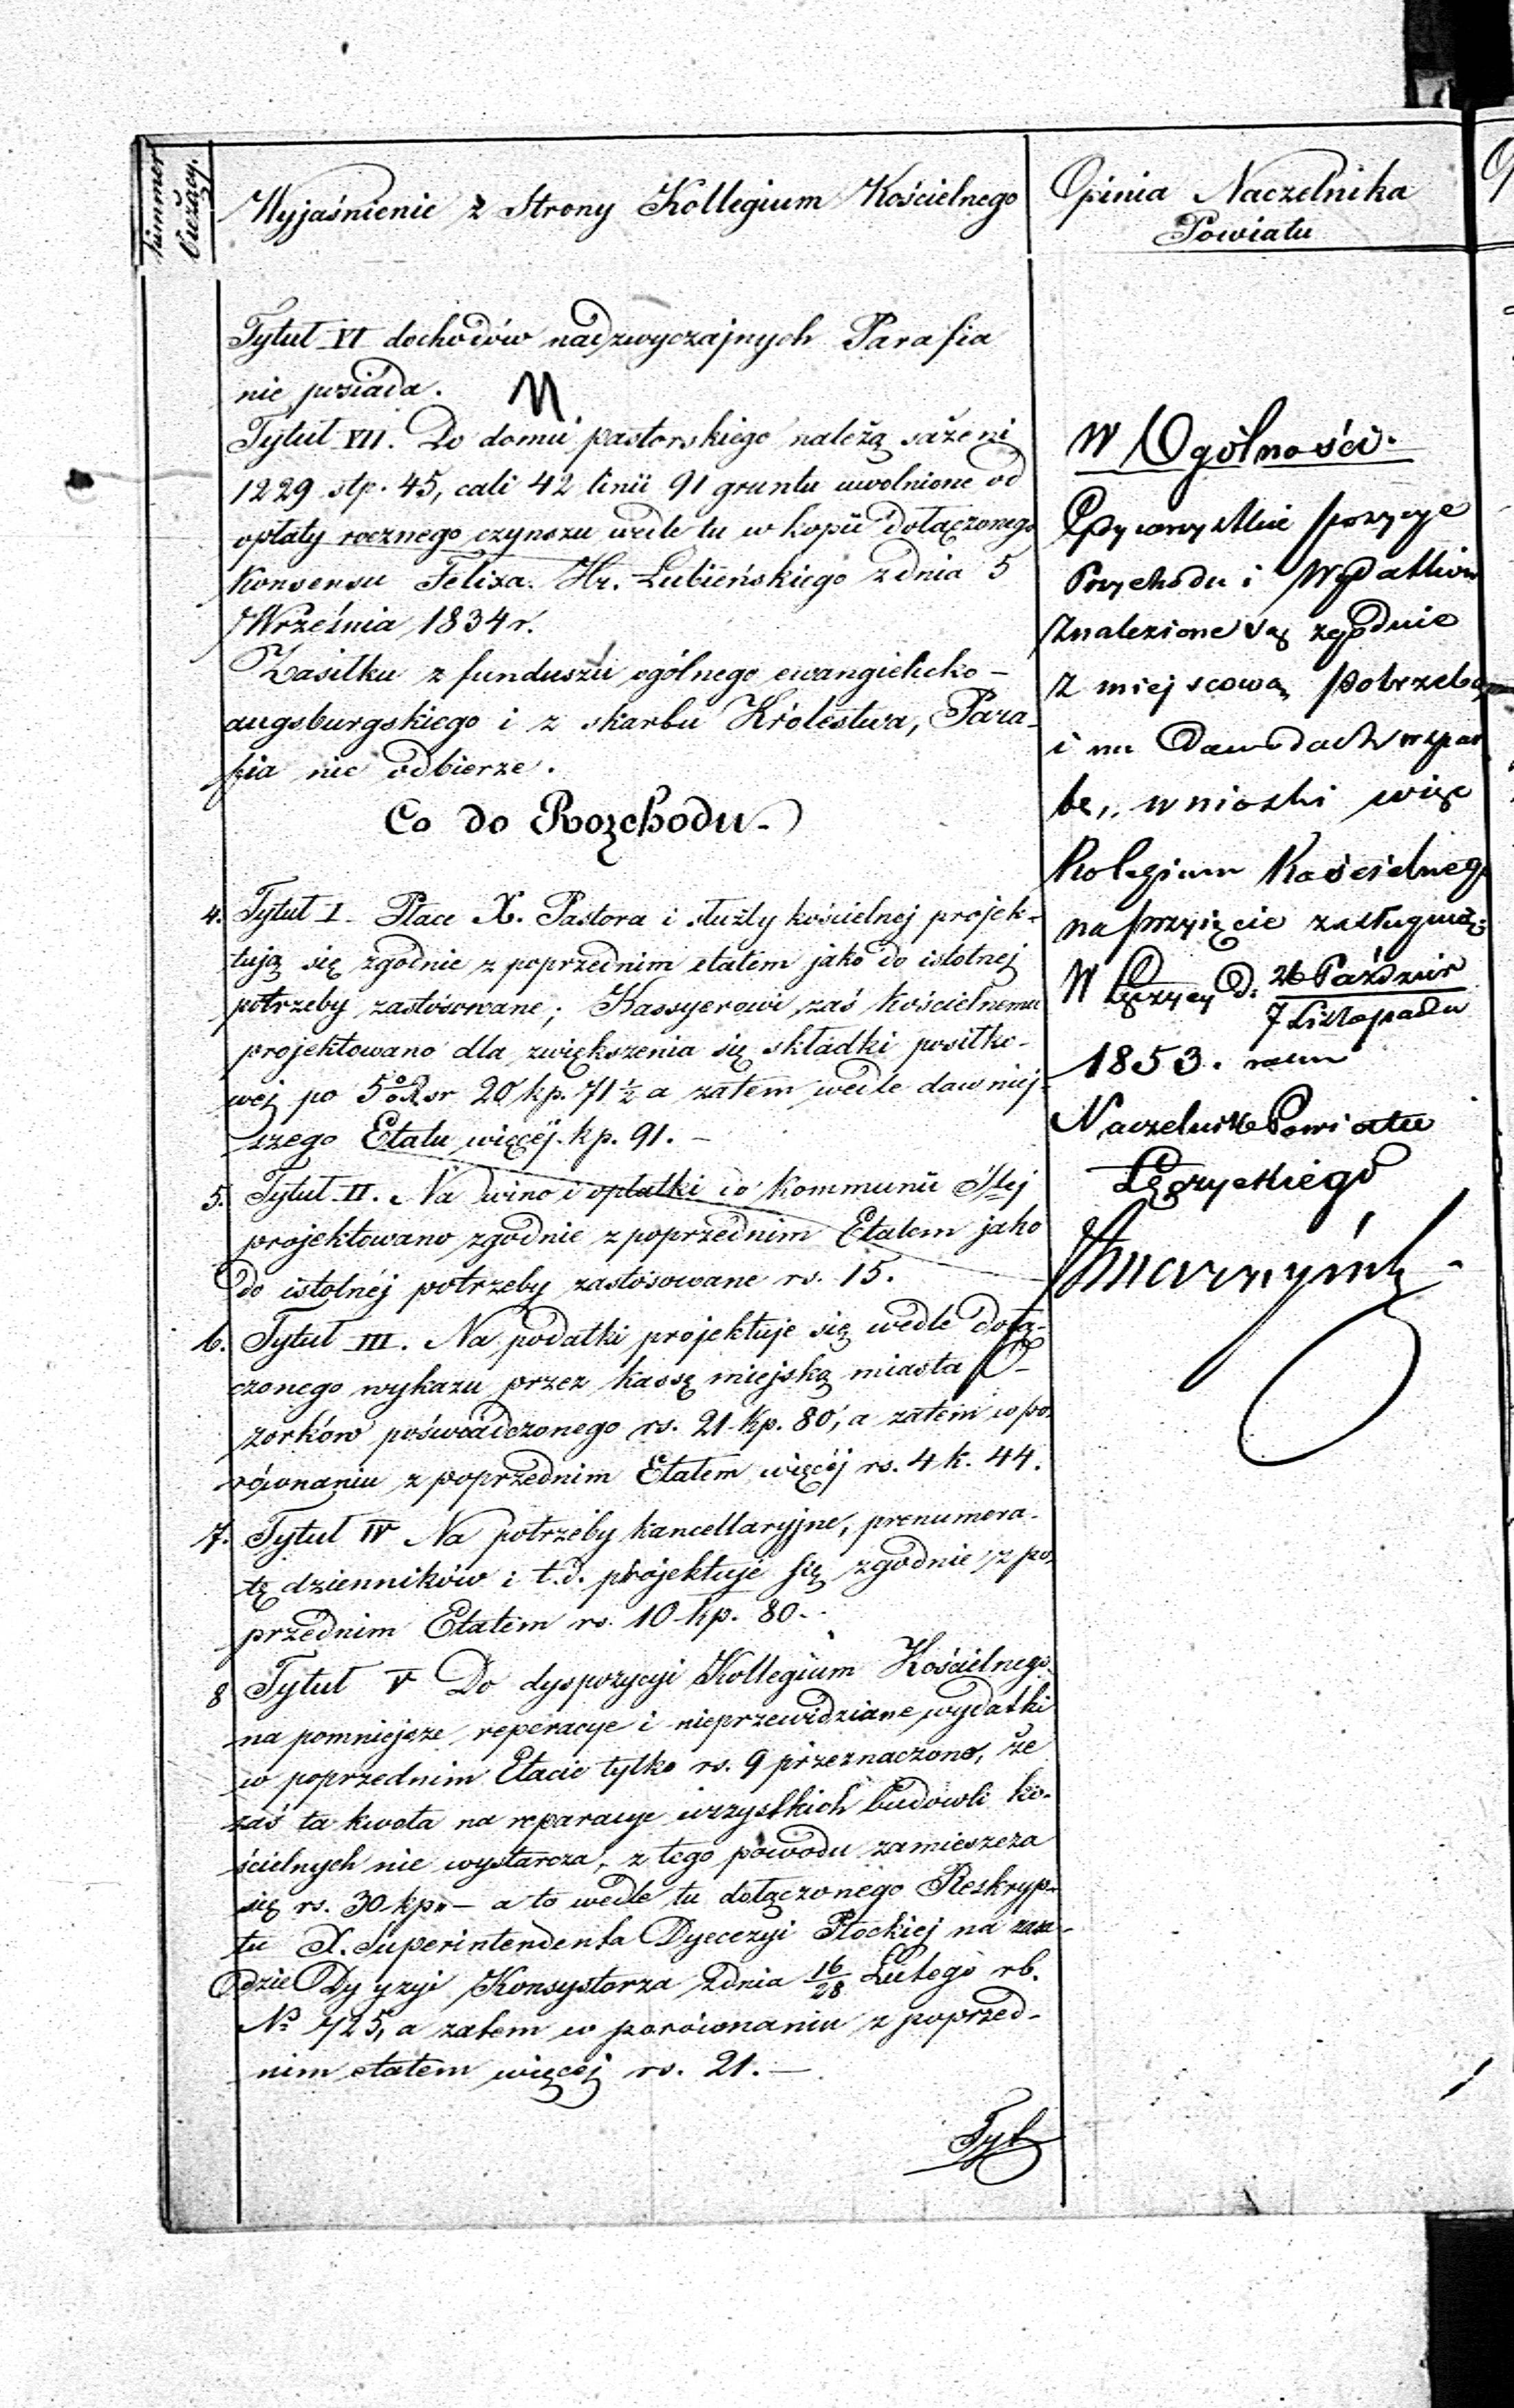 Nummer bieżący.
Wyjaśnienie z Strony Kollegium Kościelnego
Opinia Naczelnika
Powiatu
Tytuł VI dochodów nadzwyczajnych Parafia
nie posiada.
Tytuł VII. Do domu pastorskiego należą sażeni
1229 stp. 45, cali 42 linii 91 gruntu uwolnione od
opłaty rocznego czynszu wedle tu w kopii dołączonego
Konsensu Felixa Hr. Łubieńskiego z dnia 5
Września 1834 r.
Zasiłku z funduszu ogólnego ewangielicko-
augsburgskiego i z skarbu Królestwa, Para-
fia nie odbierze.
Co do Rozchodu.
4. Tytuł I. Płace X. Pastora i służby kościelnej projek-
tują się zgodnie z poprzednim etatem jako do istotnej
potrzeby zastósowane; Kassyerowi zaś kościelnemu
projektowano dla zwiększenia się składki posiłko-
wej po 5% Rsr 20 kp. 71½ a zatem wedle dawniej-
szego Etatu więcéj kp. 91.-
5. Tytuł II. Na wino i opłatki do kommunii Stej
projektowano zgodnie z poprzednim Etatem jako
do istotnéj potrzeby zastósowane rs. 15.
6. Tytuł III. Na podatki projektuje się wedle dołą-
czonego wykazu przez kassę miejską miasta O-
zorków poświadczonego rs. 21 kp. 80, a zatem w po-
równaniu z poprzednim Etatem więcéj rs. 4 k. 44.
7. Tytuł IV Na potrzeby kancellaryjne, prenumera-
tę dzienników i t.d. projektuje się zgodnie z po-
przednim Etatem rs. 10 kp. 80.
8 Tytuł V Do dyspozycyi Kollegium Kościelnego
na pomniejsze reperacye i nieprzewidziane wydatki
w poprzednim Etacie tylko rs. 9 przeznaczono, że
zaś ta kwota na reparacye wszystkich budowli ko-
ścielnych nie wystarcza, z tego powodu zamieszcza
się rs. 30 kp" – a to wedle tu dołączonego Reskryp-
tu X. Superintendenta Dyecezyi Płockiej na zasa-
dzie Konsystorza z dnia 16/28 Lutego rb.
Nº 725, a zatem w porównaniu z poprzed-
nim etatem więcej rs. 21.—
Tyt
W Ogólności.
pozycye
Przychodu i Wydatków
Znalezione są zgodnie
z miejscową potrzebą
i na Dowodach wspar
te, wnioski więc
Kolegium Kościelnego
na przyjęcie zasługują:
W Łęczycy d. 26 Paździer
7 Listopada
1853. roku
Naczelnik Powiatu
Łęczyckiego